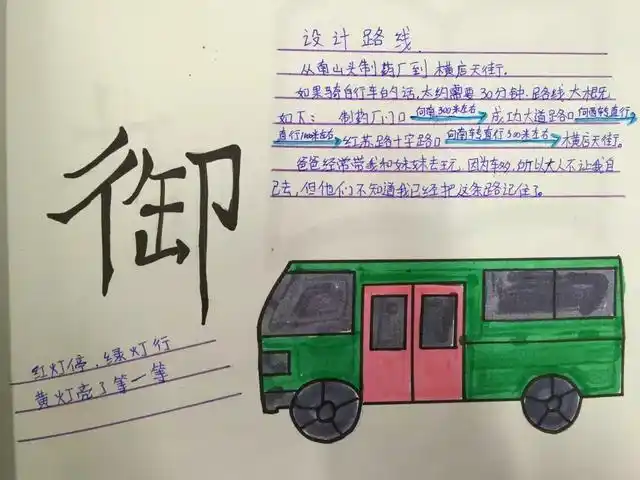 设计路线
从南山头制药厂到横店天街.
如果骑自行车的话,大约需要30分钟.路线大概
如下: 制药厂门口 向南300米左右 成功大道路口 向西转直行
直行1100米左右 红苏路十字路口 向南转直行500米左右 横店天街。
爸爸经常带我和妹妹去玩,因为车多,所以大人不让我自
己去,但他们不知道我已经把这条路记住了。
御
红灯停,绿灯行
黄灯亮了等一等